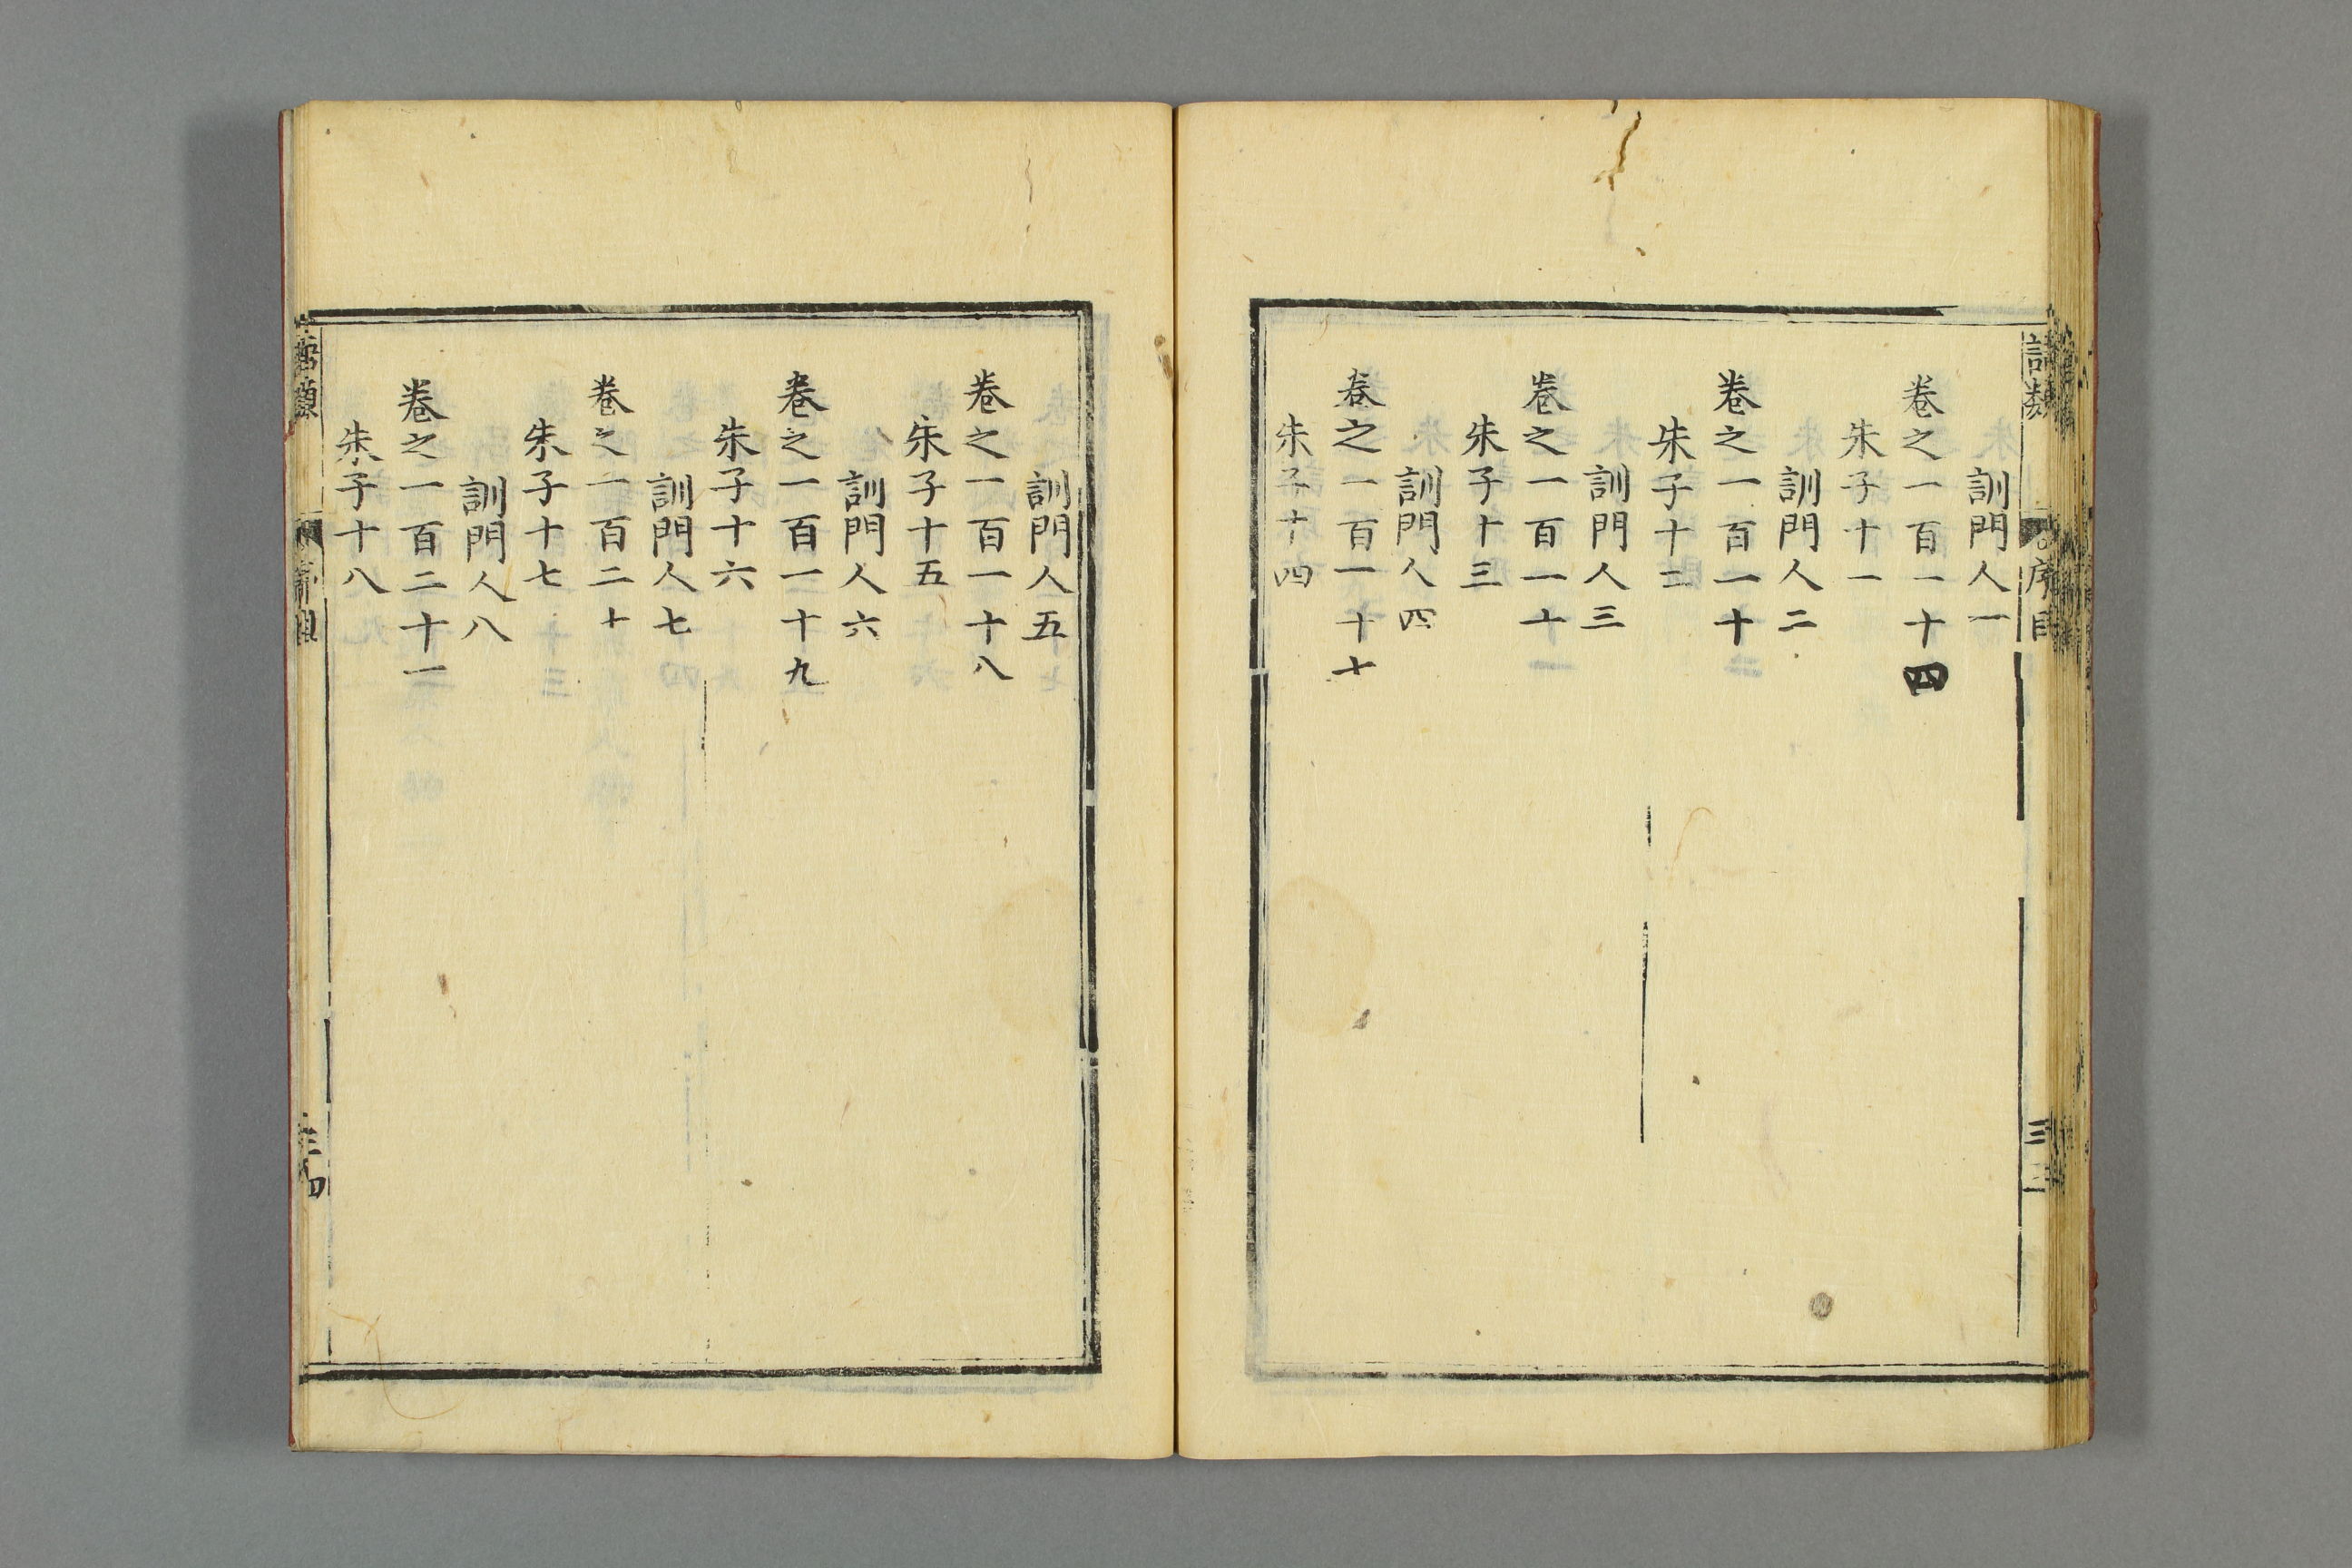 語類 序目
訓門人一
卷之一百一十四
朱子十一
訓門人二
卷之一百一十
朱子十二
訓門人三
卷之一百一十
朱子十三
訓門人四
卷之一百一十七
朱子十四
訓門人五
卷之一百一十八
朱子十五
訓門人六
卷之一百一十九
朱子十六
訓門人七
卷之一百二十
朱子十七
訓門人八
卷之一百二十一
朱子十八